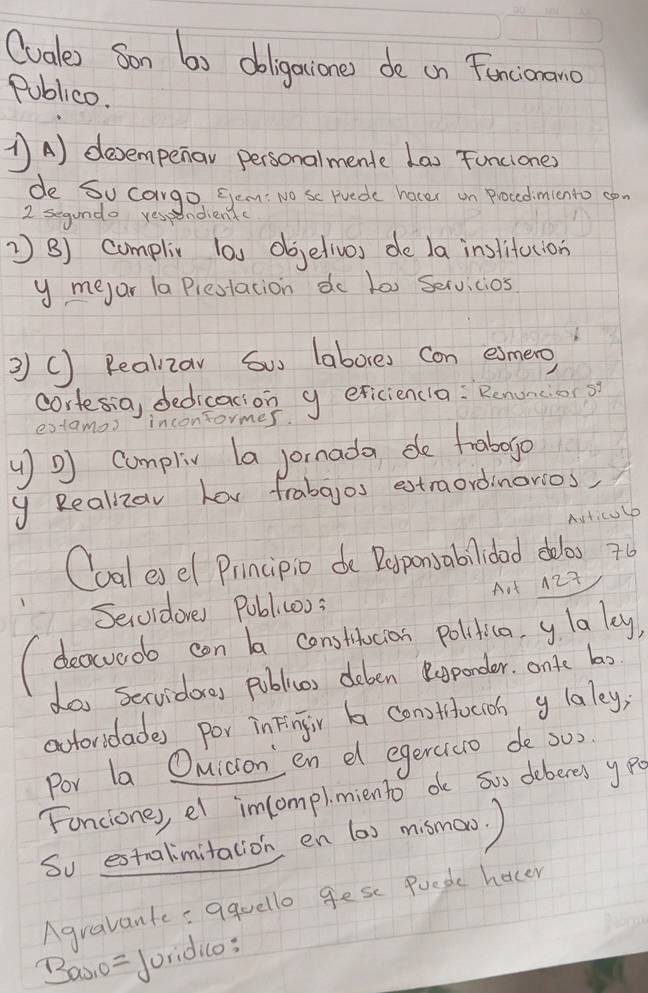 Cuales Son las obligaciones de un Funcionario
Publico.
1) A) desempeñar personalmente Las Funciones
de Su cargo Ejem: No se puede hacer un Procedimiento con
2 segundo respondiente
2) B) Cumplir los objetivos de la institucion
y mejar la Prestacion de Los Servicios.
3) C) Realizar Sus labores con esmero,
cortesia, dedicacion y eficiencia: Renunciar si
estamos inconformes.
4) D) Cumplir la jornada de trabajo
y Realizar Los trabajos estraordinarios,
Articulo
Cual es el Principio de Responsabilidad delos 76
Servidores Publicos: Art 127
(deacuerdo con la constitucion politica. y la ley,
Los Servidores Publicos deben Responder. ante las.
autoridades por infingir la constitucion y la ley;
Por la Omicion en el egercicio de sus.
Funciones, el imcomplimiento de Sus deberes y Po
Su estralimitación en las mismas.)
Agravante: aquello qe se Puede hacer
Basio = Juridico: